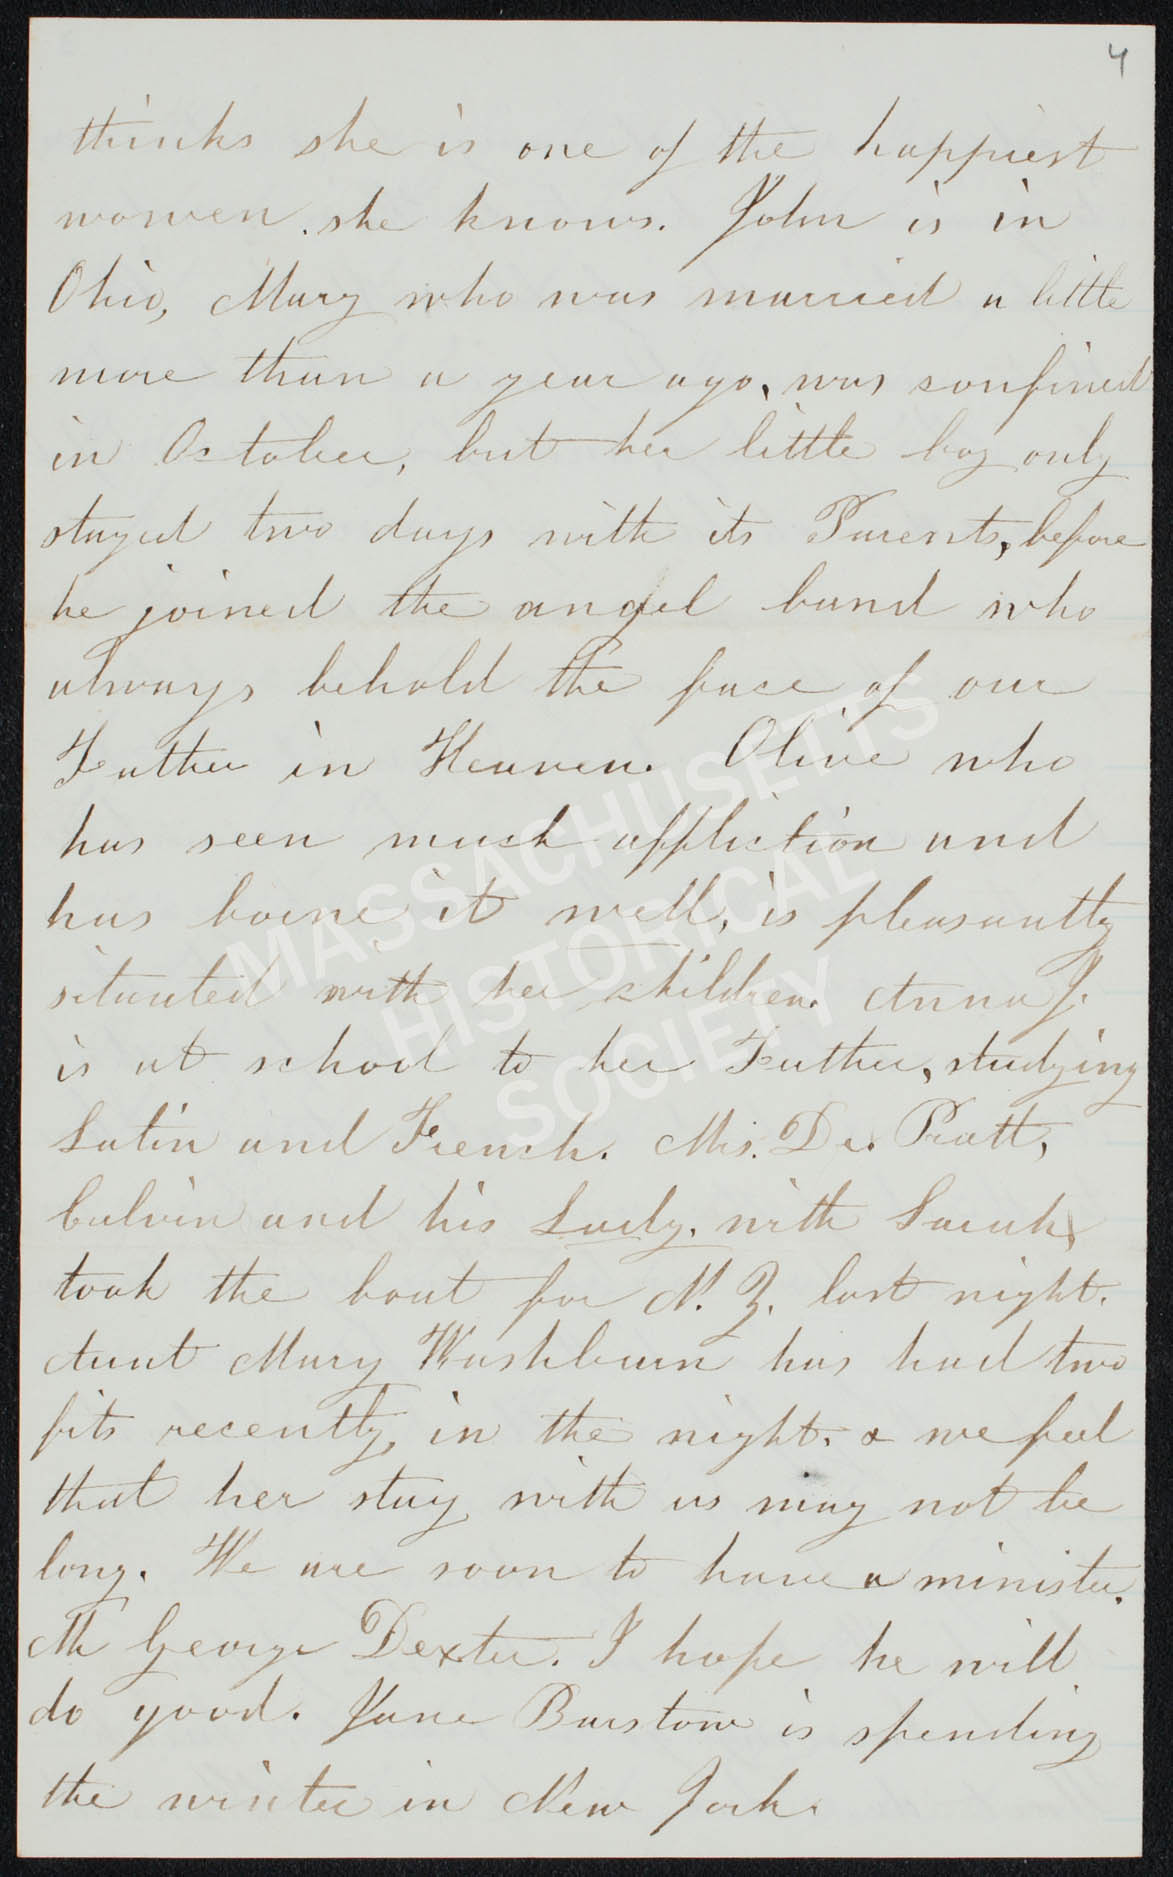 4
thinks she is one of the happiest
women. she knows. John is in
Ohio, Mary who was married a little
more than a year ago, was confined
in October, but her little boy only
stayed two days with its Parents, before
he joined the angel band who
always behold the face of our
Father in Heaven. Olive who
has seen much affliction and
has borne it well, is pleasantly
situated with her children. Anna J.
is at school to her Father, studying
Latin and French. Mrs. Dr. Pratt,
Calvin and his Lady, with Sarah,
took the boat for N. Y. last night.
Aunt Mary Washburn has had two
fits recently, in the night, & we feel
that her stay with us may not be
long. We are soon to have a minister.
Mr George Dexter. I hope he will
do good. Jane Barstow is spending
the winter in New York.
MASSACHUSETTS
HISTORICAL
SOCIETY